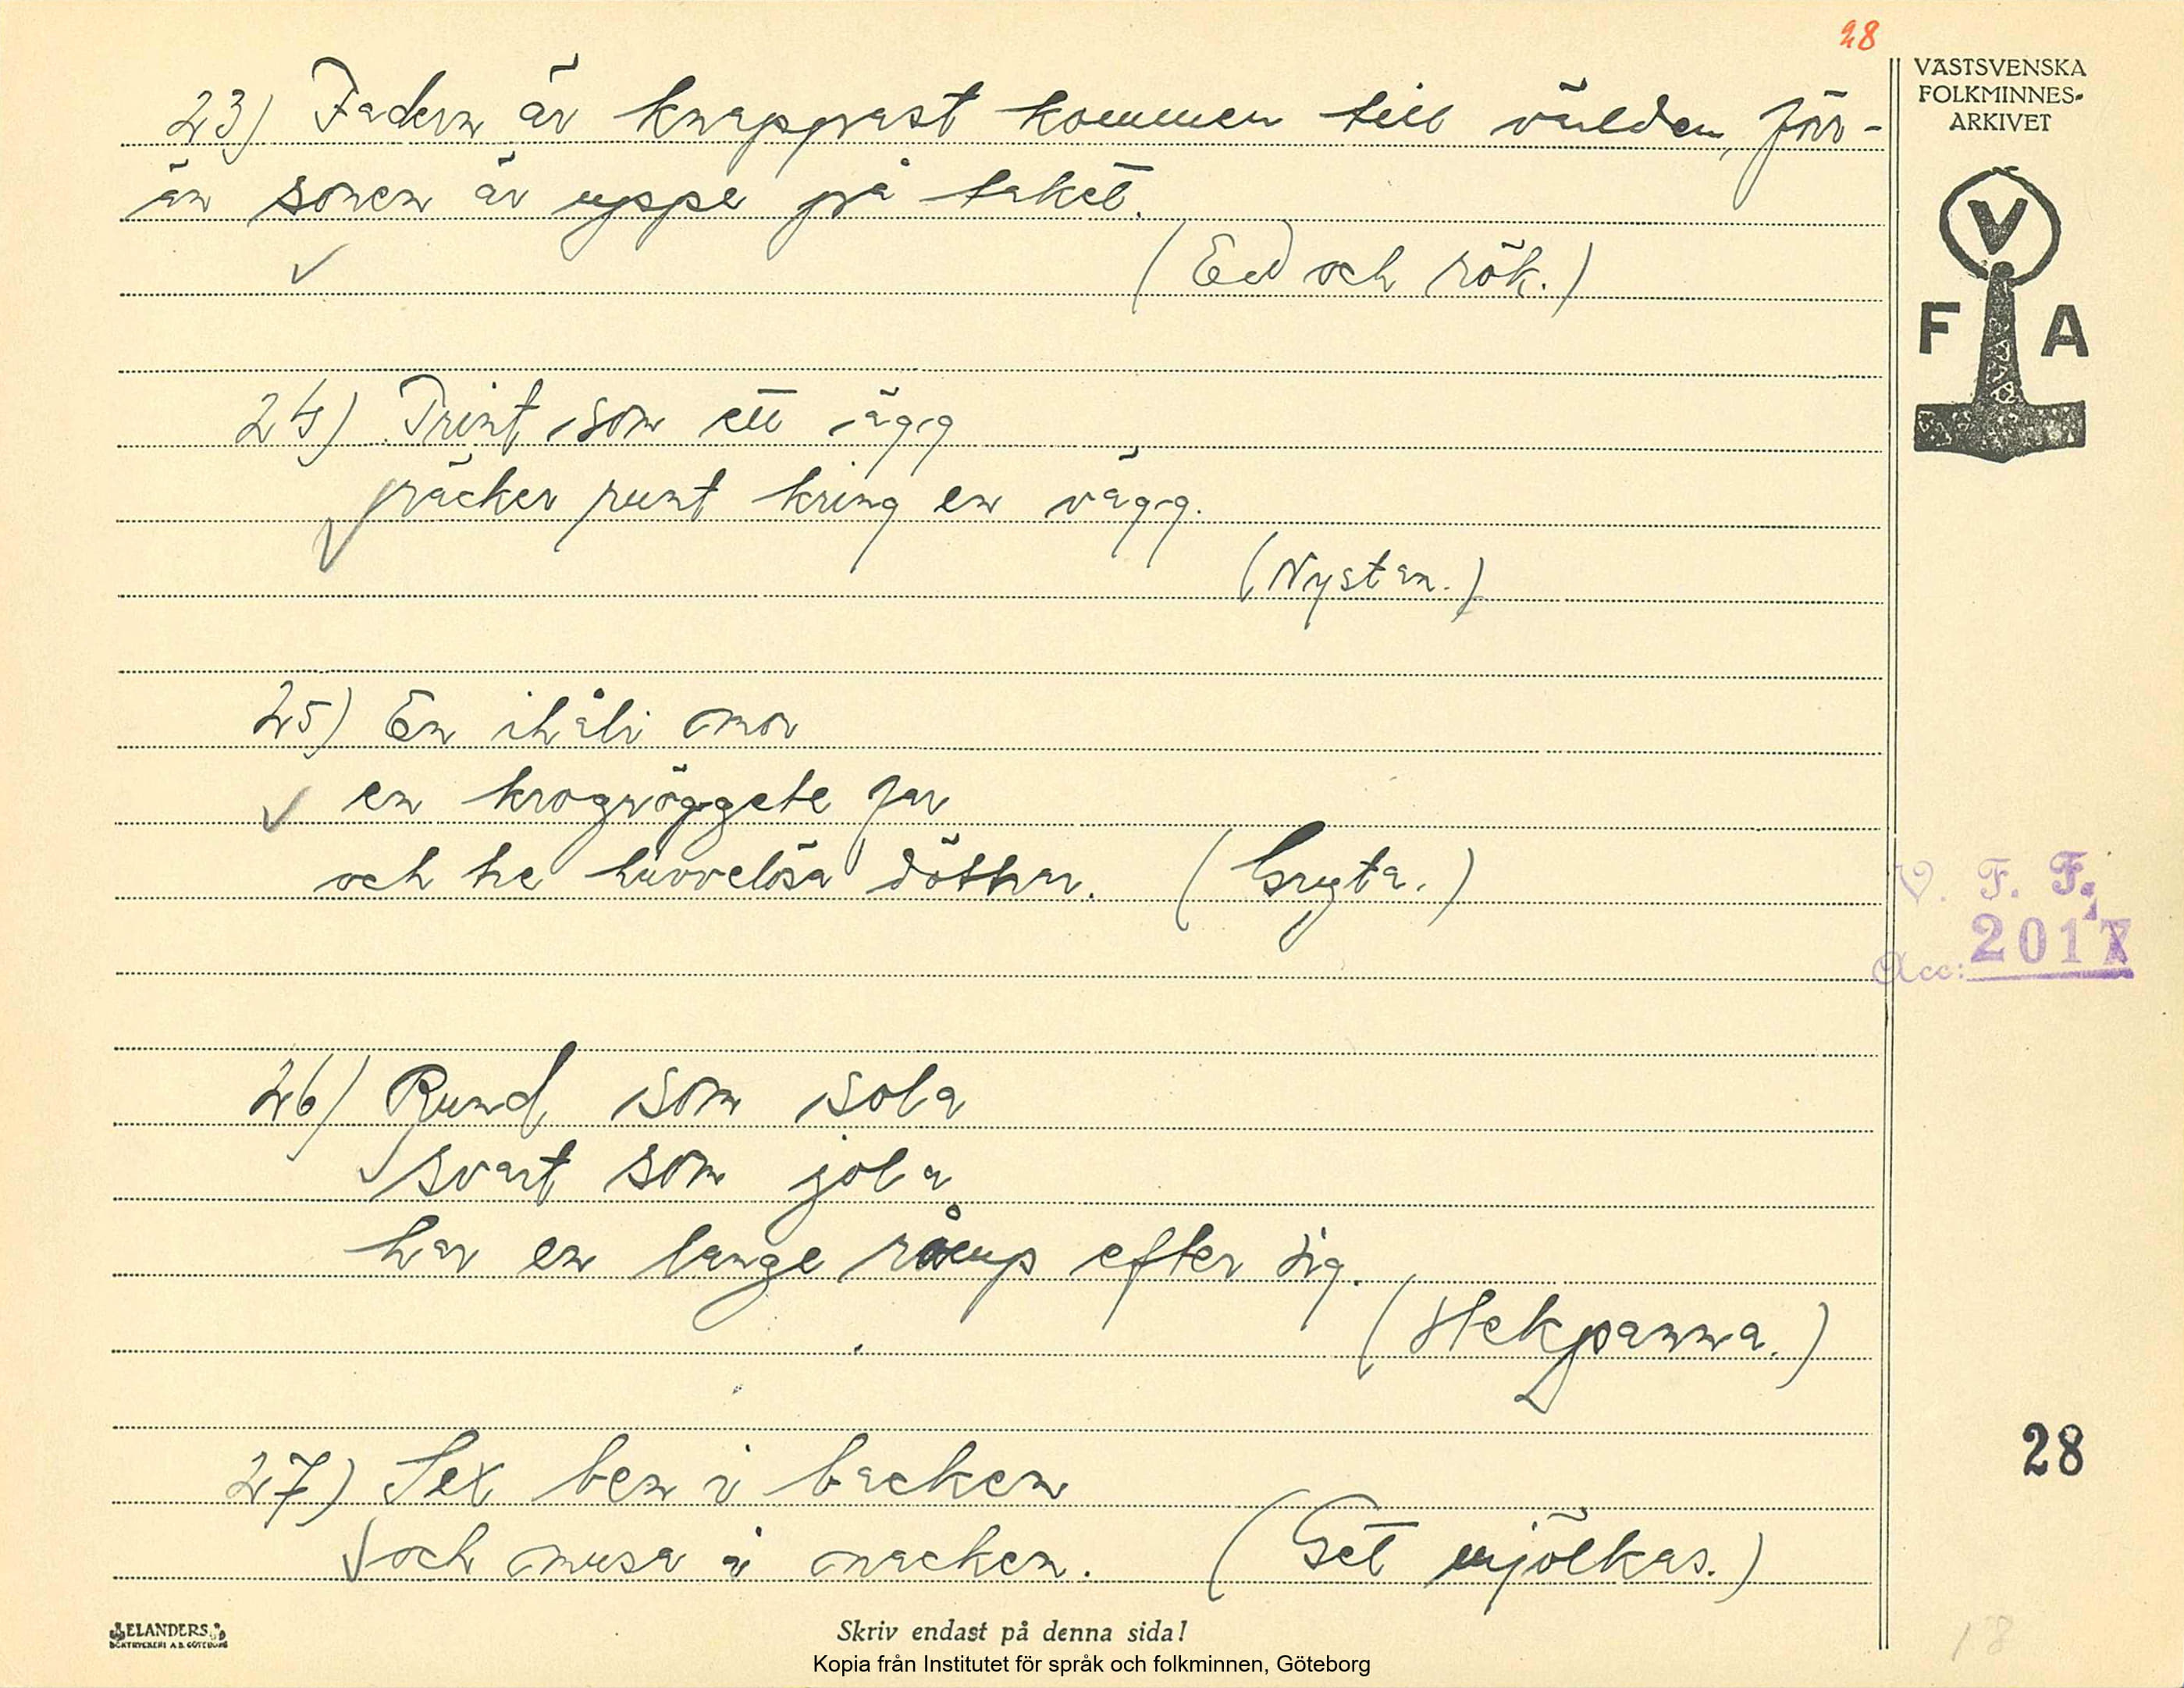 28
VÄSTSVENSKA
FOLKMINNES-
ARKIVET
V
F A
23) Fadern är knappast kommen till världen, förr-
än sonen är uppe på taket.
(Eld och rök.)
24) Trint som ett ägg
räcker runt kring en vägg.
(Nystan.)
25) En ihåli mor
en krogröggete far
och tre huvvelösa döttrar. (Gryta.)
V. F. F.
Acc: 2017
26) Rund som sola
svart som jola
har en lange efter sig.
(Stekpanna.)
27) Sex ben i backen
och musa i nacken. (Get mjölkas.)
28
18
ELANDERS
BOKTRYCKERI A.B. GÖTEBORG
Skriv endast på denna sida!
Kopia från Institutet för språk och folkminnen, Göteborg